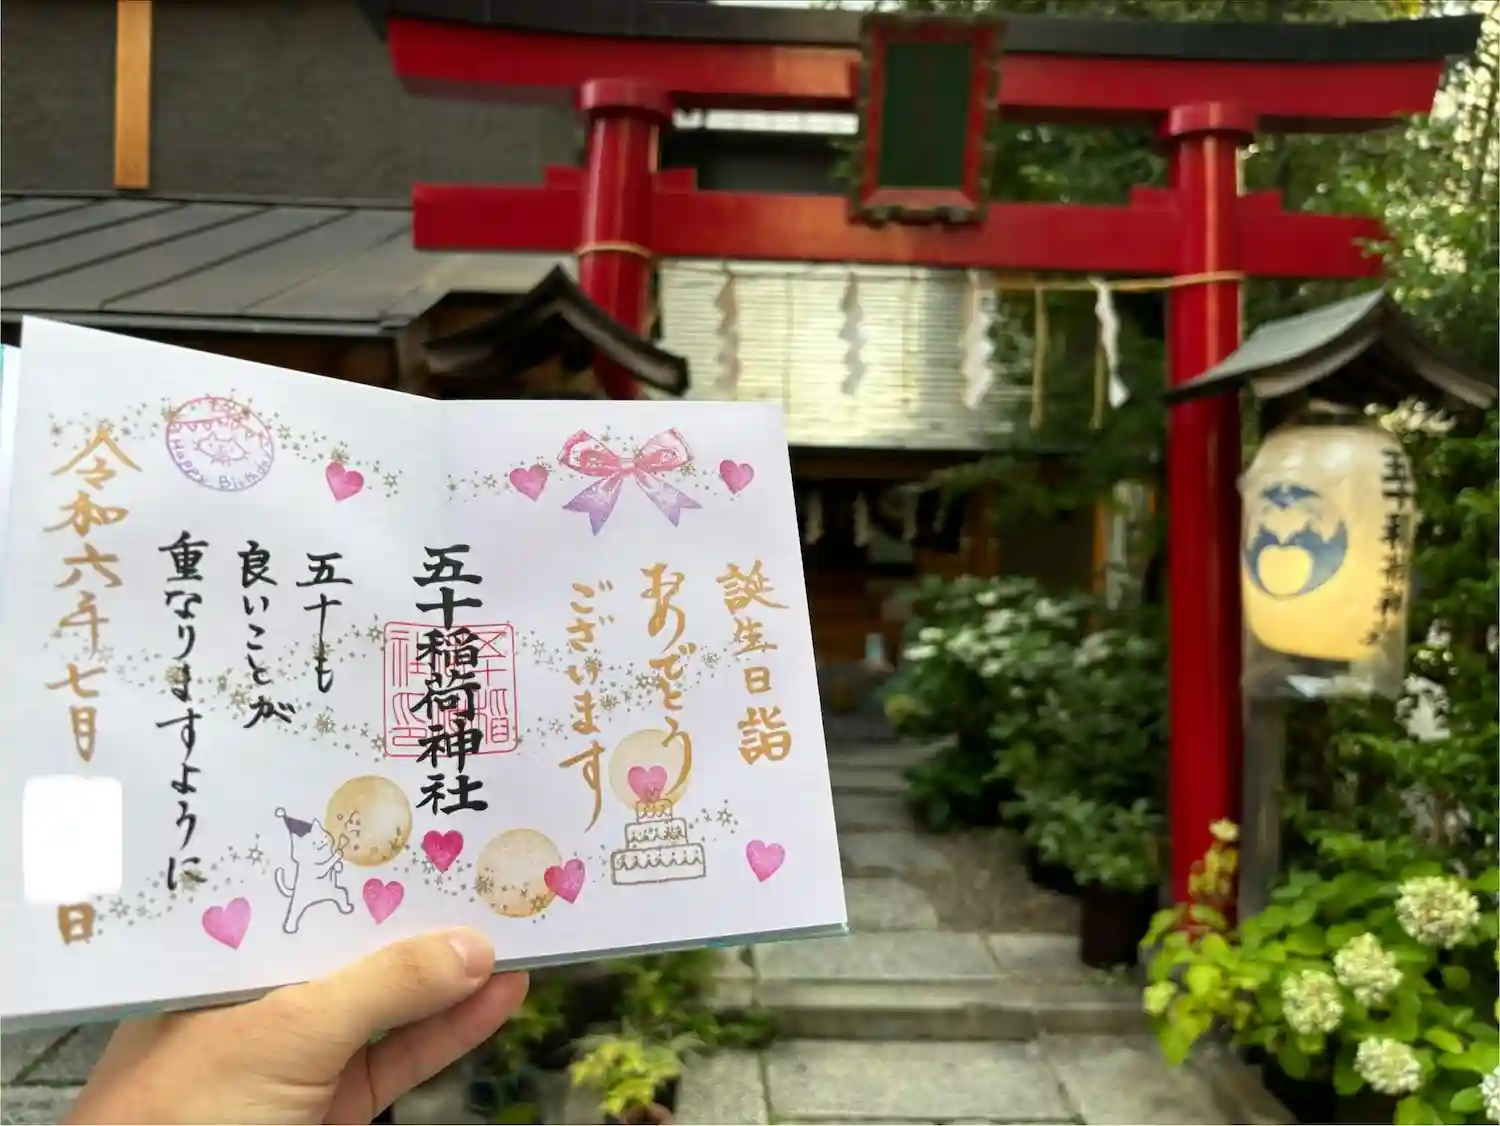 誕生日詣
おめでとう
ございます
五十稲荷神社
五十も
良いことが
重なりますように
令和六年七月
日
Happy Birthday
五十稲荷神社